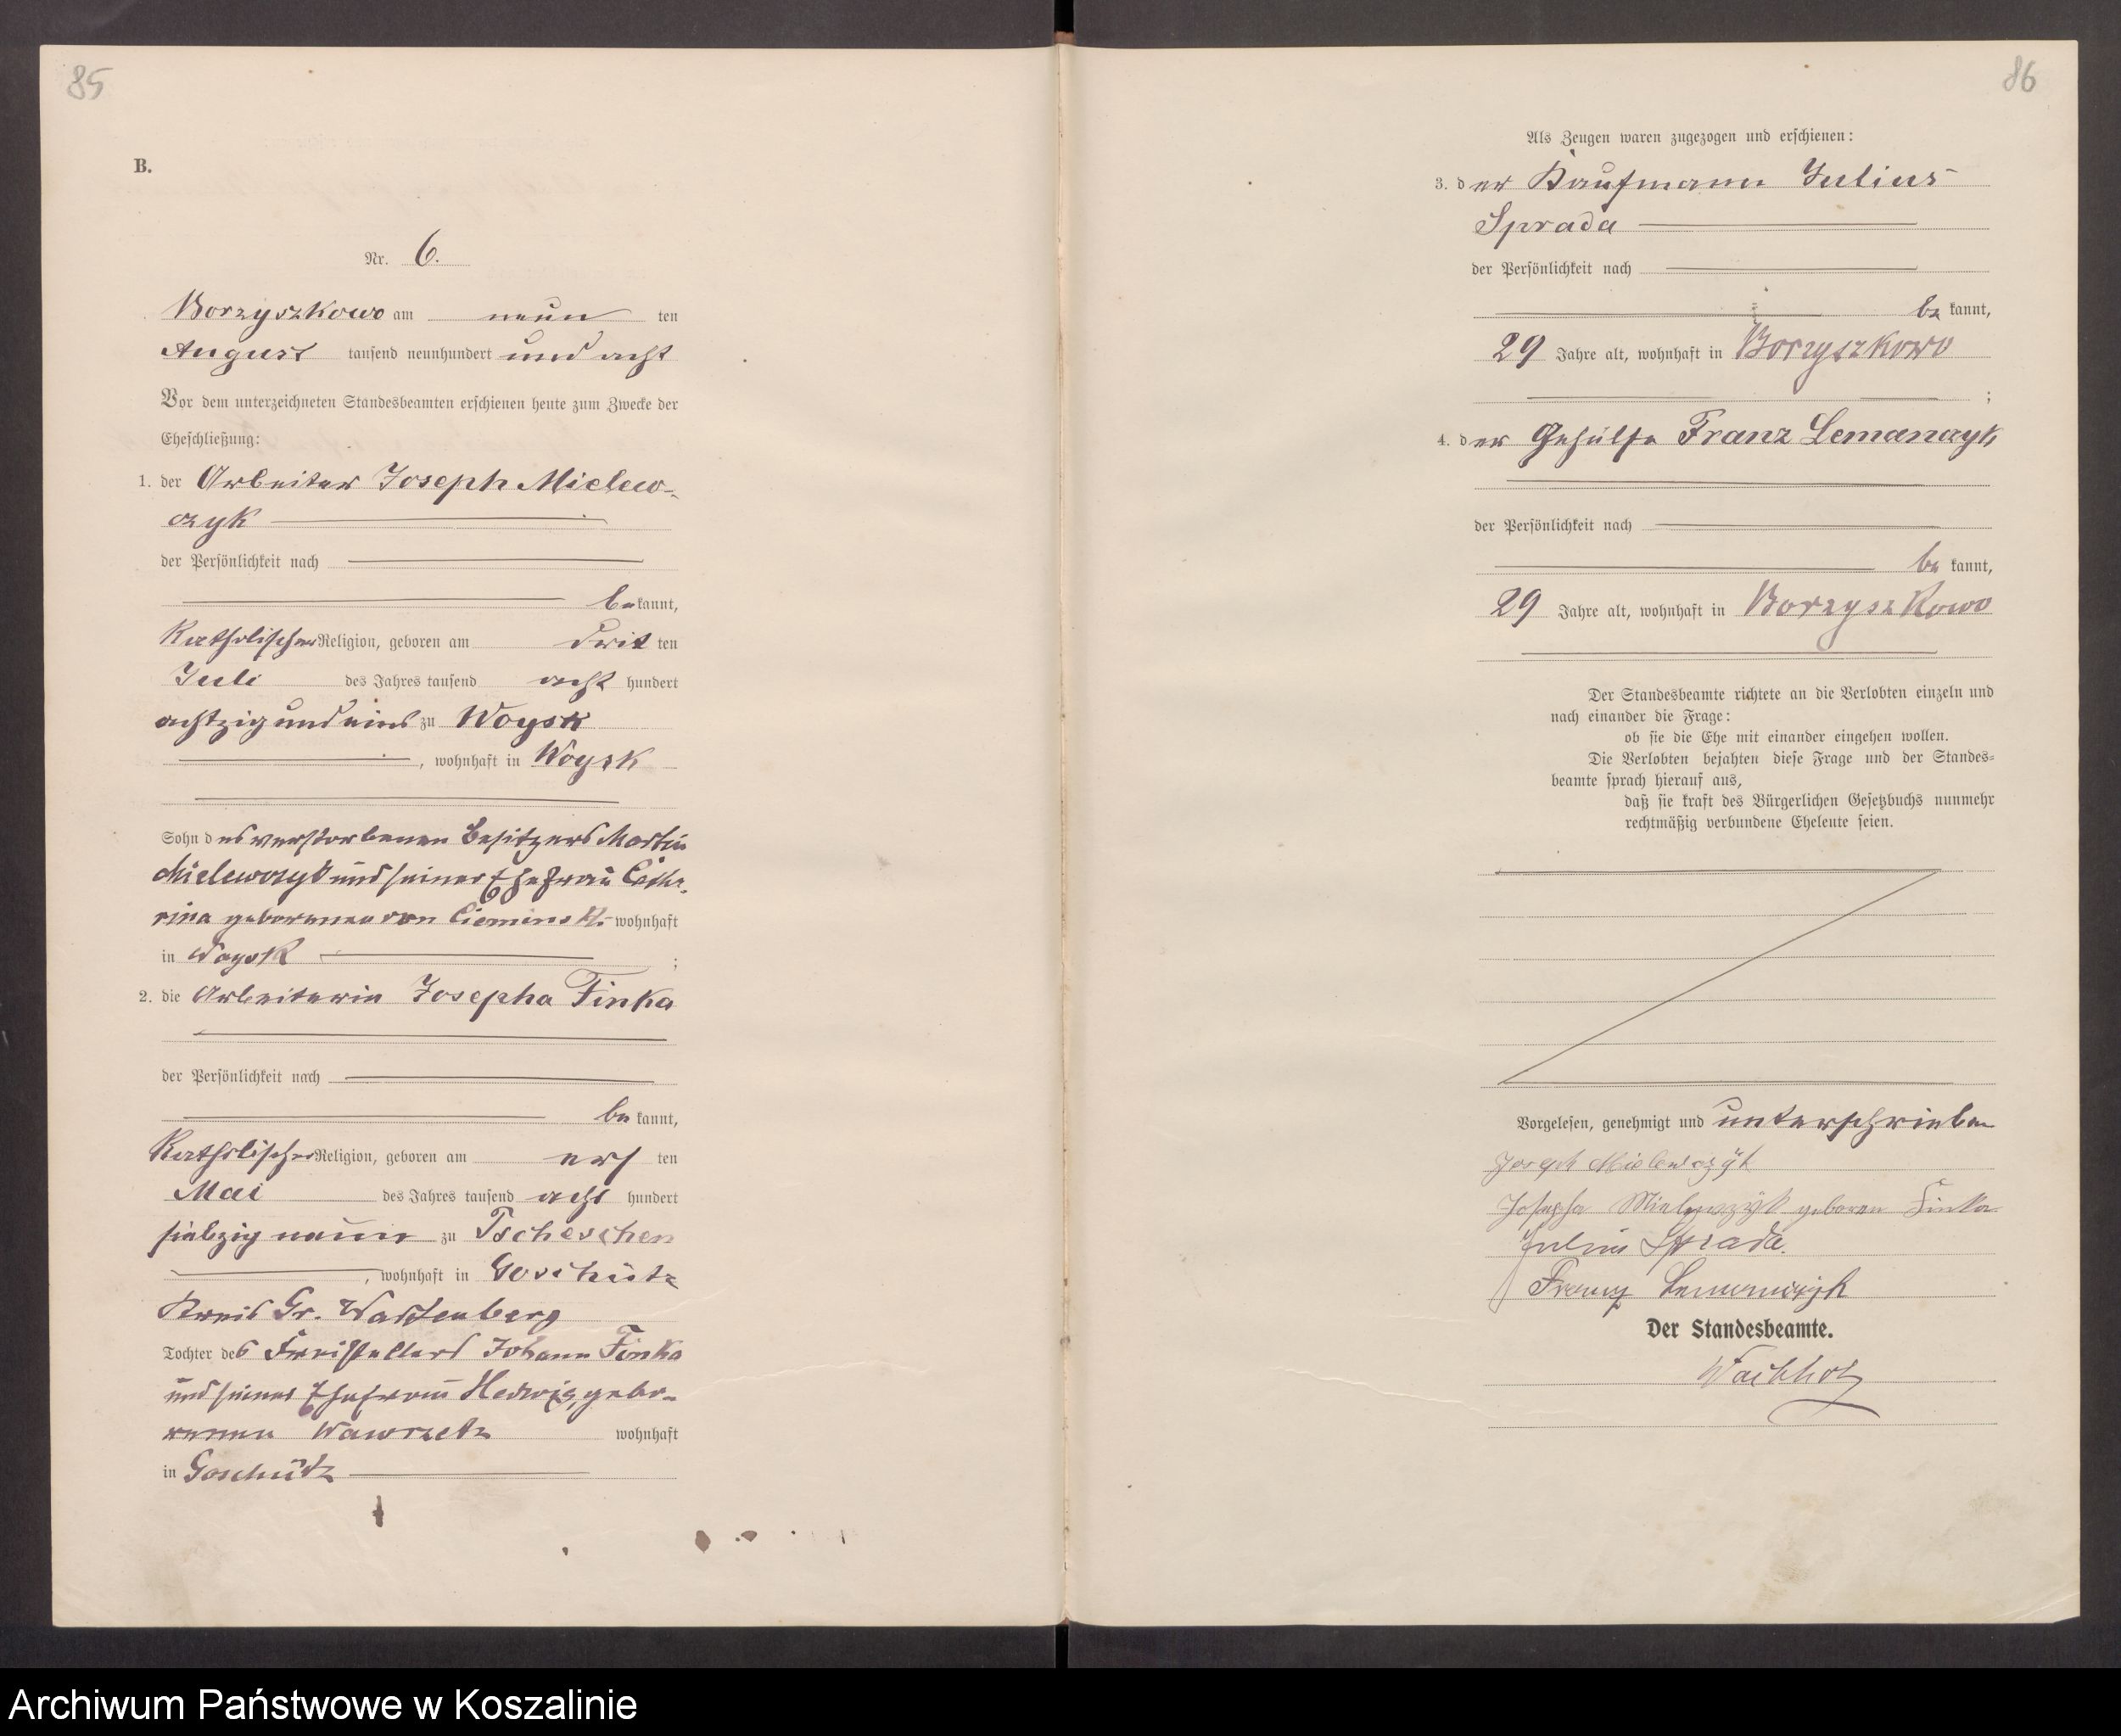 85
B.
Nr. 6.
Borzyszkowo am neun ten
August tausend neunhundert und acht
Vor dem unterzeichneten Standesbeamten erschienen heute zum Zwecke der
Eheschließung:
1. der Arbeiter Joseph Mielew-
czyk
der Persönlichkeit nach
be kannt,
katholischer Religion, geboren am drit ten
Juli des Jahres tausend acht hundert
achtzig und eins zu Woysk
, wohnhaft in Woysk
Sohn des verstorbenen Besitzers Martin
Mielewczyk und seiner Ehefrau Catha-
rina geborenen von Cieminski wohnhaft
in Woysk ;
2. die Arbeiterin Josepha Finka
der Persönlichkeit nach
be kannt,
katholischer Religion, geboren am ers ten
Mai des Jahres tausend acht hundert
siebzig neun zu Tscheschen
, wohnhaft in Goschütz
Kreis Gr. Wartenberg
Tochter des Freistellers Johann Finka
und seiner Ehefrau Hedwig, gebo-
renen Wawrzetz wohnhaft
in Goschütz
86
Als Zeugen waren zugezogen und erschienen:
3. der Kaufmann Julius
Sprada
der Persönlichkeit nach
be kannt,
29 Jahre alt, wohnhaft in Borzyszkowo
;
4. der Gehülfe Franz Lemanczyk
der Persönlichkeit nach
be kannt,
29 Jahre alt, wohnhaft in Borzyszkowo
Der Standesbeamte richtete an die Verlobten einzeln und
nach einander die Frage:
ob sie die Ehe mit einander eingehen wollen.
Die Verlobten bejahten diese Frage und der Standes=
beamte sprach hierauf aus,
daß sie kraft des Bürgerlichen Gesetzbuchs nunmehr
rechtmäßig verbundene Eheleute seien.
Vorgelesen, genehmigt und unterschrieben
Joseph Mielewczyk
Josepha Mielewczyk geboren Finka
Julius Sprada.
Franz Lemanczyk
Der Standesbeamte.
Archiwum Państwowe w Koszalinie